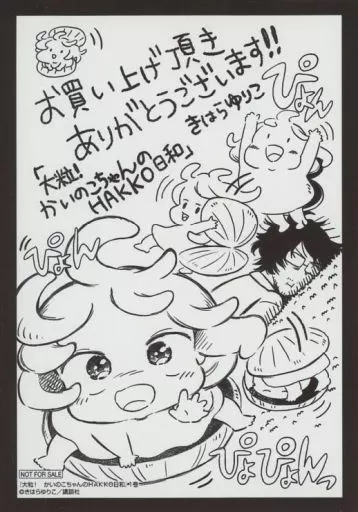 お買い上げ頂き
ありがとうございます!!
きはらゆりこ
「大粒!
かいのこちゃんの
HAKKO日和」
ぴょん
ぴょん
ぴょぴょんっ
NOT FOR SALE
『大粒! かいのこちゃんのHAKKO日和』1巻
©きはらゆりこ/講談社